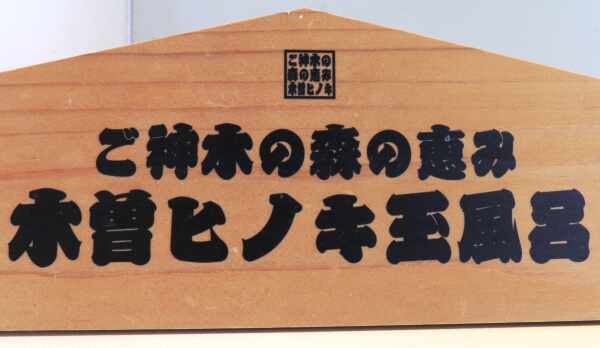 ご神木の
森の恵み
木曽ヒノキ
ご神木の森の恵み
木曽ヒノキ玉風呂